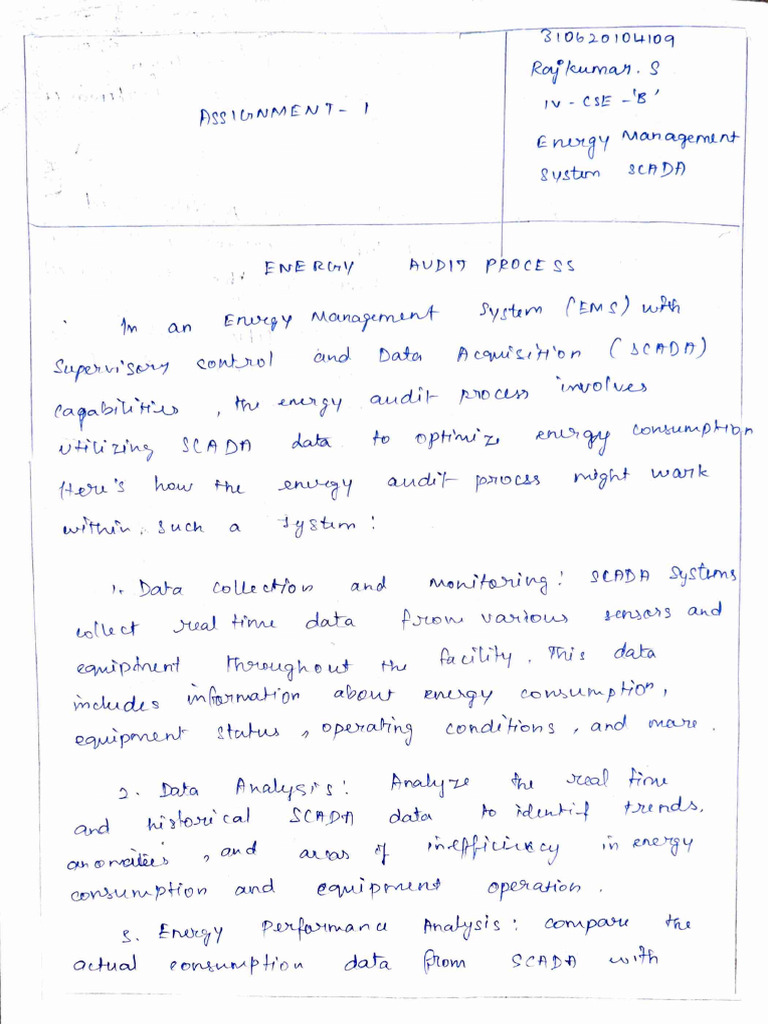 310620104109
Rajkumar. S
IV - CSE - 'B'
ASSIGNMENT - 1
Energy Management
System SCADA
ENERGY AUDIT PROCESS
In an Energy Management System (EMS) with
Supervisory control and Data Acquisition (SCADA)
capabilities, the energy audit process involves
utilizing SCADA data to optimize energy consumption
Here's how the energy audit process might work
within such a system:
1. Data collection and monitoring: SCADA Systems
collect real time data from various sensors and
equipment throughout the facility. This data
includes information about energy consumption,
equipment status, operating conditions, and more.
2. Data Analysis: Analyze the real time
and historical SCADA data to identif trends,
and areas of inefficiency in energy
consumption and equipment operation.
3. Energy Performance Analysis: compare the
actual consumption data from SCADA with